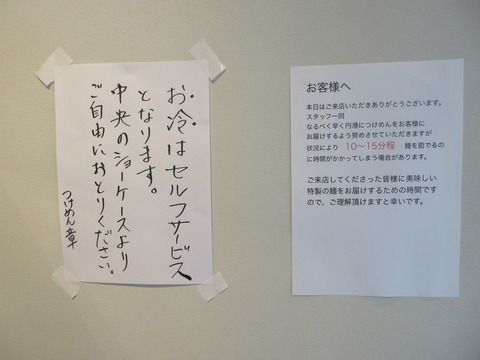 お冷はセルフサービス
となります。
中央のショーケースより
ご自由におとりください。
つけめん章
お客様へ
本日はご来店いただきありがとうございます。
スタッフ一同
なるべく早く円滑につけめんをお客様に
お届けするよう努めさせていただきますが
状況により 10〜15分程 麺を茹でるの
に時間がかかってしまう場合があります。
ご来店してくださった皆様に美味しい
特製の麺をお届けするための時間です
ので、ご理解頂けますと幸いです。